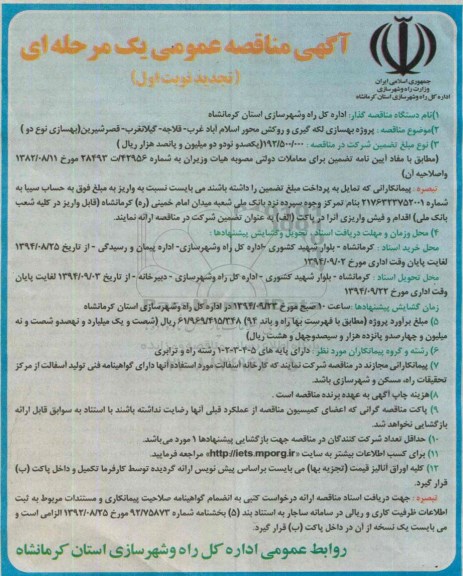 آگهی مناقصه عمومی یک مرحله ای
(تجدید نوبت اول)
جمهوری اسلامی ایران
وزارت راه و شهرسازی
اداره کل راه و شهرسازی استان کرمانشاه
۱)نام دستگاه مناقصه گذار: اداره کل راه وشهرسازی استان کرمانشاه
۲)موضوع مناقصه : پروژه بهسازی لکه گیری و روکش محور اسلام آباد غرب- قلاجه- گیلانغرب- قصرشیرین(بهسازی نوع دو )
۳) نوع مبلغ تضمین شرکت در مناقصه : ۱۹۲/۵۰۰/۰۰۰(یکصدو نودو دو میلیون و پانصد هزار ریال )
(مطابق با مفاد آیین نامه تضمین برای معاملات دولتی مصوبه هیات وزیران به شماره ۴۲۹۵۶/ت ۲۸۴۹۳ مورخ ۱۳۸۲/۰۸/۱۱
واصلاحیه آن)
تبصره : پیمانکارانی که تمایل به پرداخت مبلغ تضمین را داشته باشند می بایست نسبت به واریز به مبلغ فوق به حساب سیبا به
شماره ۲۱۷۶۳۲۳۷۵۲۰۰۱ بنام تمرکز وجوه سپرده نزد بانک ملی شعبه میدان امام خمینی (ره) کرمانشاه (قابل واریز در کلیه شعب
بانک ملی) اقدام و فیش واریزی آنرا در پاکت (الف) به عنوان تضمین شرکت در مناقصه ارائه نمایند.
۴) محل وزمان و مهلت دریافت اسناد، تحویل وگشایش پیشنهادها :
محل خرید اسناد : کرمانشاه - بلوار شهید کشوری -اداره کل راه وشهرسازی- اداره پیمان و رسیدگی - از تاریخ ۱۳۹۴/۰۸/۲۵
لغایت پایان وقت اداری مورخ ۱۳۹۴/۰۹/۰۲
محل تحویل اسناد : کرمانشاه - بلوار شهید کشوری - اداره کل راه وشهرسازی - دبیرخانه - از تاریخ ۱۳۹۴/۰۹/۰۳ لغایت پایان
وقت اداری مورخ ۱۳۹۴/۰۹/۲۲
زمان گشایش پیشنهادها :ساعت ۱۰ صبح مورخ ۱۳۹۴/۰۹/۲۳ در اداره کل راه وشهرسازی استان کرمانشاه
۵) مبلغ برآورد پروژه (مطابق با فهرست بها راه و باند ۹۴) ۶۱/۹۶۹/۴۱۵/۳۴۸ ریال (شصت و یک میلیارد و نهصدو شصت و نه
میلیون و چهارصدو پانزده هزار و سیصدوچهل و هشت ریال)
۶) رشته و گروه پیمانکاران مورد نظر: دارای پایه های ۵-۴-۳-۲-۱ رشته راه و ترابری
۷) پیمانکارانی مجازند در مناقصه شرکت نمایند که کارخانه آسفالت مورد استفاده آنها دارای گواهینامه فنی تولید آسفالت از مرکز
تحقیقات راه، مسکن و شهرسازی باشد.
۸)هزینه چاپ آگهی به عهده برنده مناقصه است .
۹) پاکت مناقصه گرانی که اعضای کمیسیون مناقصه از عملکرد قبلی آنها رضایت نداشته باشند با استناد به سوابق قابل ارائه
بازگشایی نخواهد شد.
۱۰) حداقل تعداد شرکت کنندگان در مناقصه جهت بازگشایی پیشنهادها ۱ مورد می‌باشد.
۱۱) برای کسب اطلاعات بیشتر به سایت «http://iets.mporg.ir» مراجعه فرمایید.
۱۲) کلیه اوراق آنالیز قیمت (تجزیه بها) می بایست براساس پیش نویس ارائه گردیده توسط کارفرما تکمیل و داخل پاکت (ب)
قرار گیرد.
تبصره : جهت دریافت اسناد مناقصه ارائه درخواست کتبی به انضمام گواهینامه صلاحیت پیمانکاری و مستندات مربوط به ثبت
اطلاعات ظرفیت کاری و ریالی در سامانه ساجار به استناد بند (۵) بخشنامه شماره ۹۲/۷۵۸۷۳ مورخ ۱۳۹۲/۰۸/۲۵ الزامی است و
می بایست یک نسخه از آن در داخل پاکت (ب) قرار گیرد.
روابط عمومی اداره کل راه وشهرسازی استان کرمانشاه